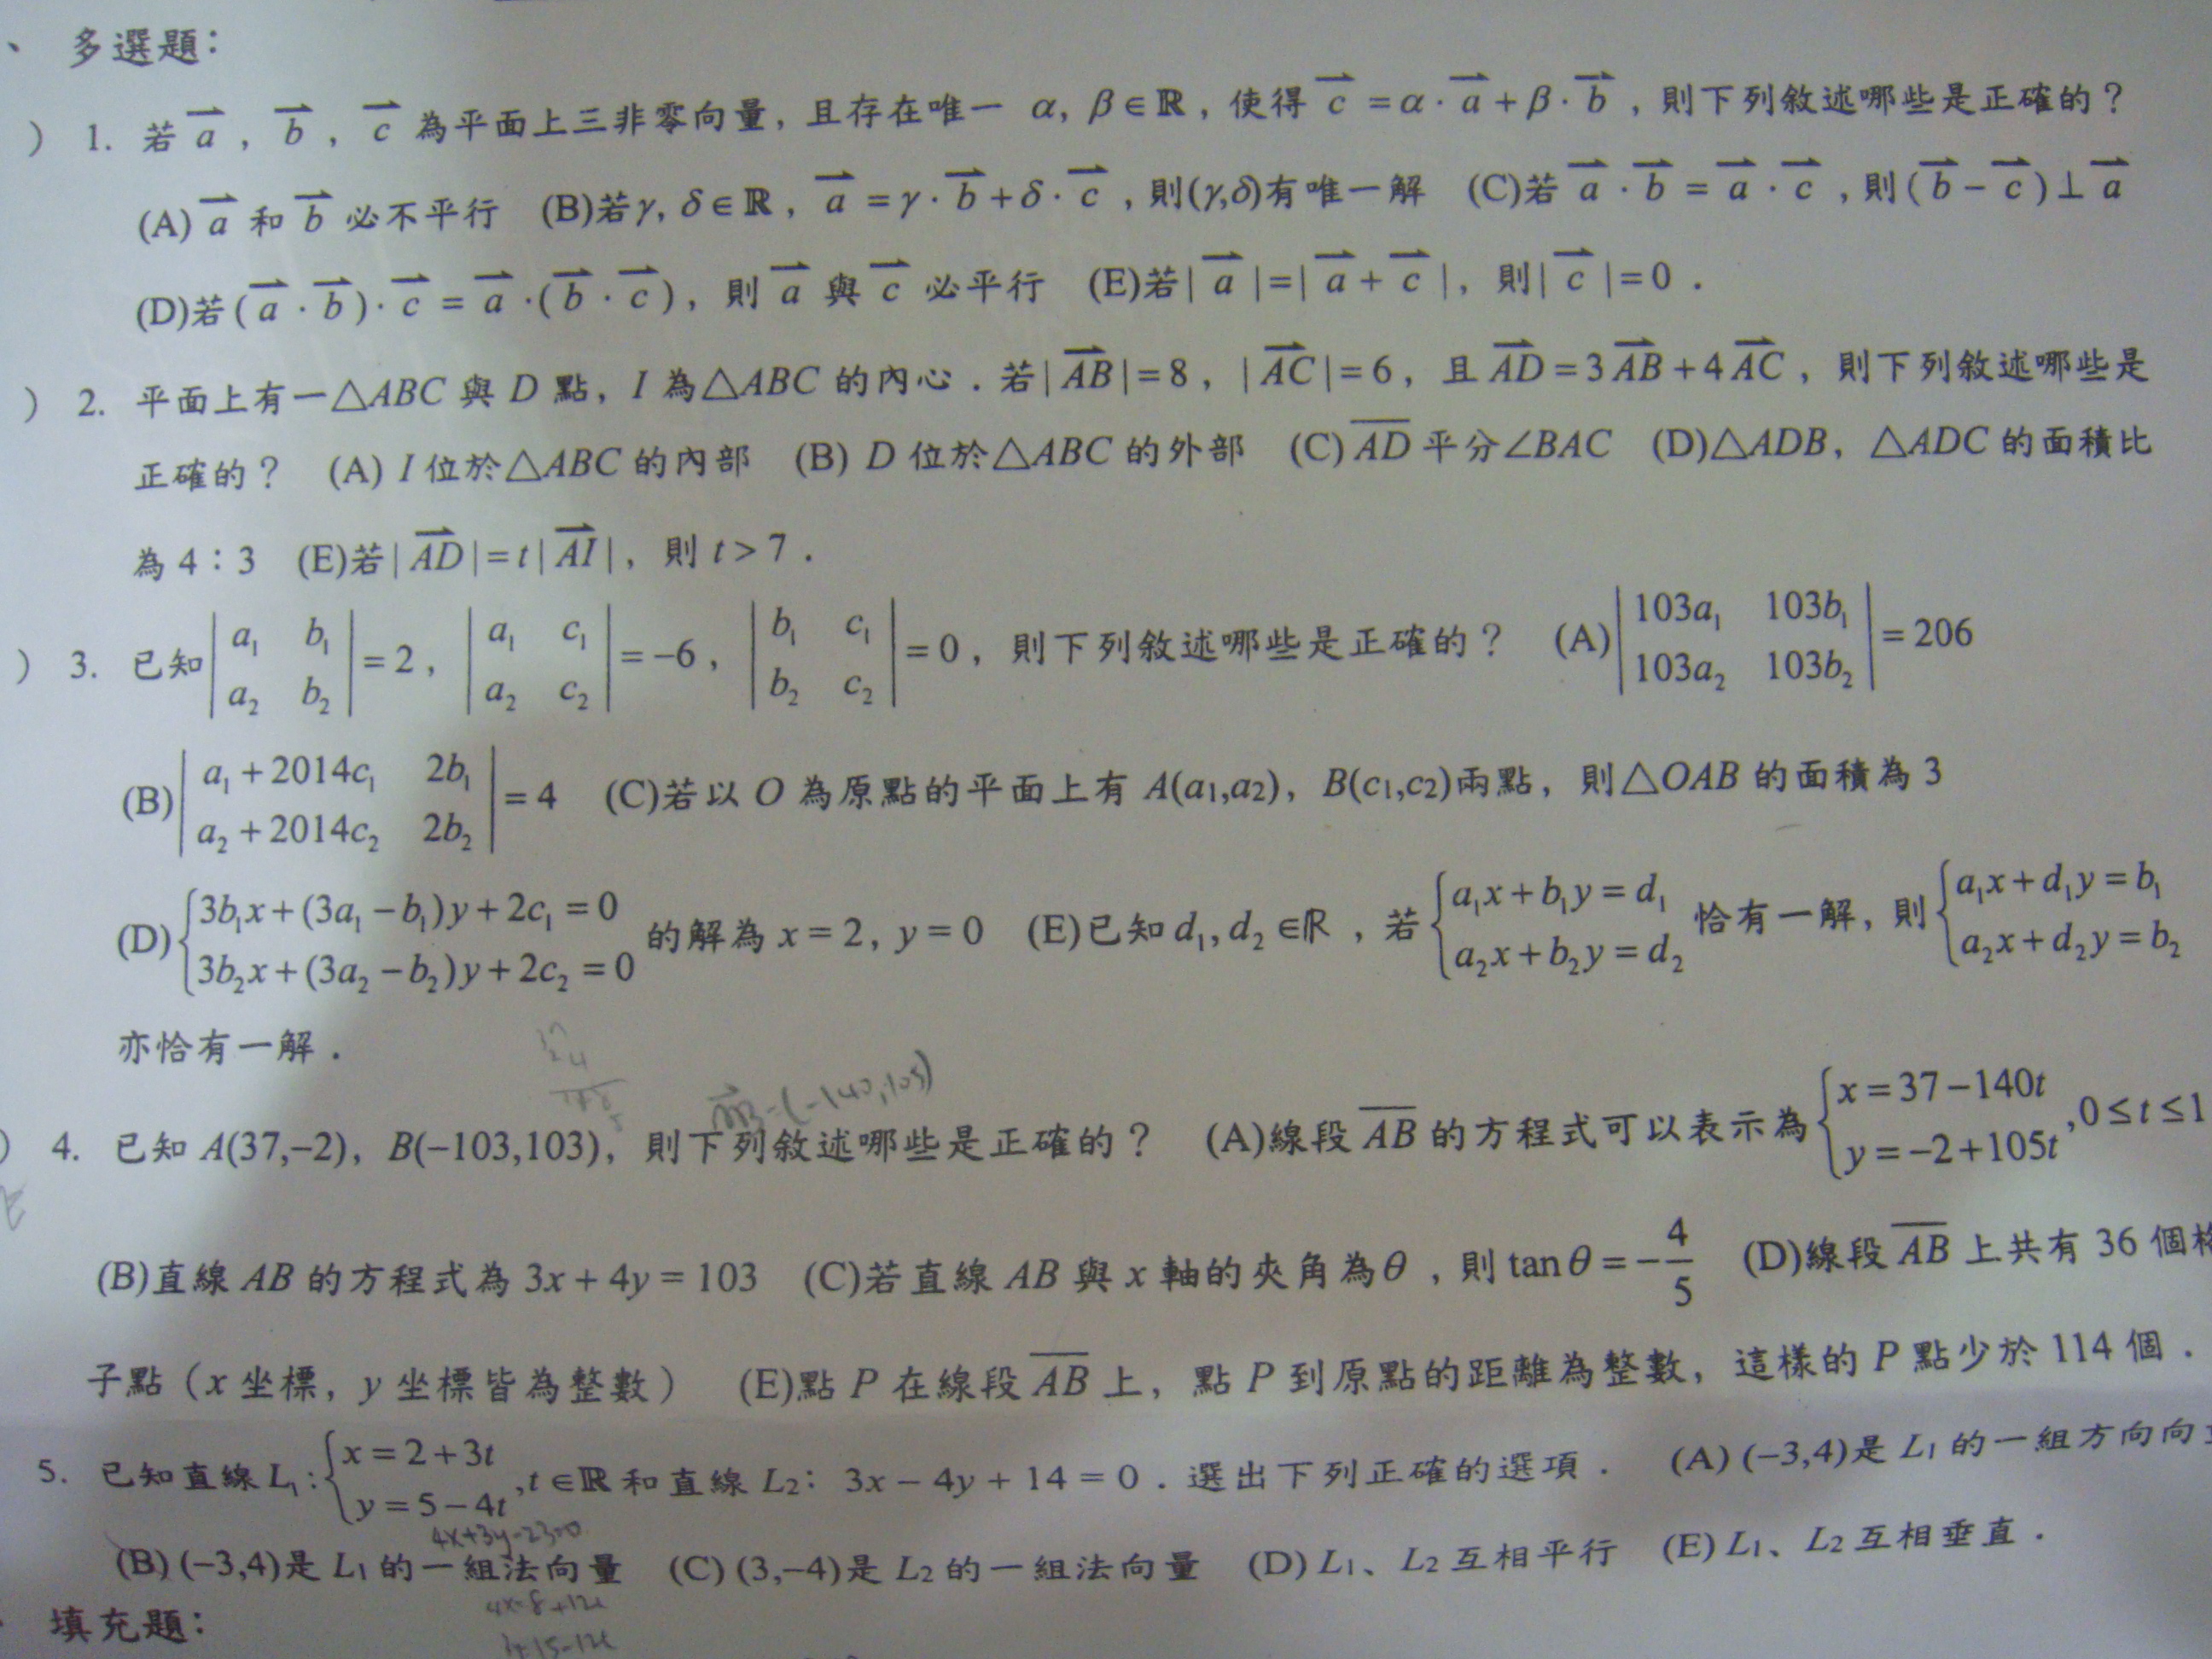 、 多選題：
) 1. 若 a⃗ , b⃗ , c⃗ 為平面上三非零向量, 且存在唯一 α, β∈ℝ, 使得 c⃗ = α· a⃗ + β· b⃗ , 則下列敘述哪些是正確的？
(A) a⃗ 和 b⃗ 必不平行 (B)若γ, δ∈ℝ, a⃗ = γ· b⃗ + δ· c⃗ , 則(γ,δ)有唯一解 (C)若 a⃗ · b⃗ = a⃗ · c⃗ , 則( b⃗ − c⃗ )⊥ a⃗
(D)若( a⃗ · b⃗ )· c⃗ = a⃗ ·( b⃗ · c⃗ ), 則 a⃗ 與 c⃗ 必平行 (E)若| a⃗ |=| a⃗ + c⃗ |, 則| c⃗ |=0．
) 2. 平面上有一△ABC 與 D 點, I 為△ABC 的內心．若| AB⃗ |=8, | AC⃗ |=6, 且 AD⃗ =3 AB⃗ +4 AC⃗ , 則下列敘述哪些是
正確的？ (A) I 位於△ABC 的內部 (B) D 位於△ABC 的外部 (C) A̅D̅ 平分∠BAC (D)△ADB, △ADC 的面積比
為 4：3 (E)若| AD⃗ |= t | AI⃗ |, 則 t > 7．
) 3. 已知 |a₁ b₁; a₂ b₂| = 2, |a₁ c₁; a₂ c₂| = −6, |b₁ c₁; b₂ c₂| = 0, 則下列敘述哪些是正確的？ (A) |103a₁ 103b₁; 103a₂ 103b₂| = 206
(B) |a₁+2014c₁ 2b₁; a₂+2014c₂ 2b₂| = 4 (C)若以 O 為原點的平面上有 A(a1,a2), B(c1,c2)兩點, 則△OAB 的面積為 3
(D) {3b₁x+(3a₁−b₁)y+2c₁=0; 3b₂x+(3a₂−b₂)y+2c₂=0 的解為 x = 2, y = 0 (E)已知 d₁, d₂ ∈ℝ , 若 {a₁x+b₁y=d₁; a₂x+b₂y=d₂ 恰有一解, 則 {a₁x+d₁y=b₁; a₂x+d₂y=b₂
亦恰有一解．
(-140,105)
) 4. 已知 A(37,−2), B(−103,103), 則下列敘述哪些是正確的？ (A)線段 A̅B̅ 的方程式可以表示為 {x=37−140t; y=−2+105t ,0≤t≤1
(B)直線 AB 的方程式為 3x + 4y = 103 (C)若直線 AB 與 x 軸的夾角為θ , 則 tanθ = −4/5 (D)線段 A̅B̅ 上共有 36 個格
子點（x 坐標, y 坐標皆為整數） (E)點 P 在線段 A̅B̅ 上, 點 P 到原點的距離為整數, 這樣的 P 點少於 114 個．
5. 已知直線 L₁: {x=2+3t; y=5−4t ,t∈ℝ 和直線 L2: 3x − 4y + 14 = 0．選出下列正確的選項． (A) (−3,4)是 L1 的一組方向向
4x+3y-23=0
(B) (−3,4)是 L1 的一組法向量 (C) (3,−4)是 L2 的一組法向量 (D) L1、L2 互相平行 (E) L1、L2 互相垂直．
4x=8+12t
填充題：